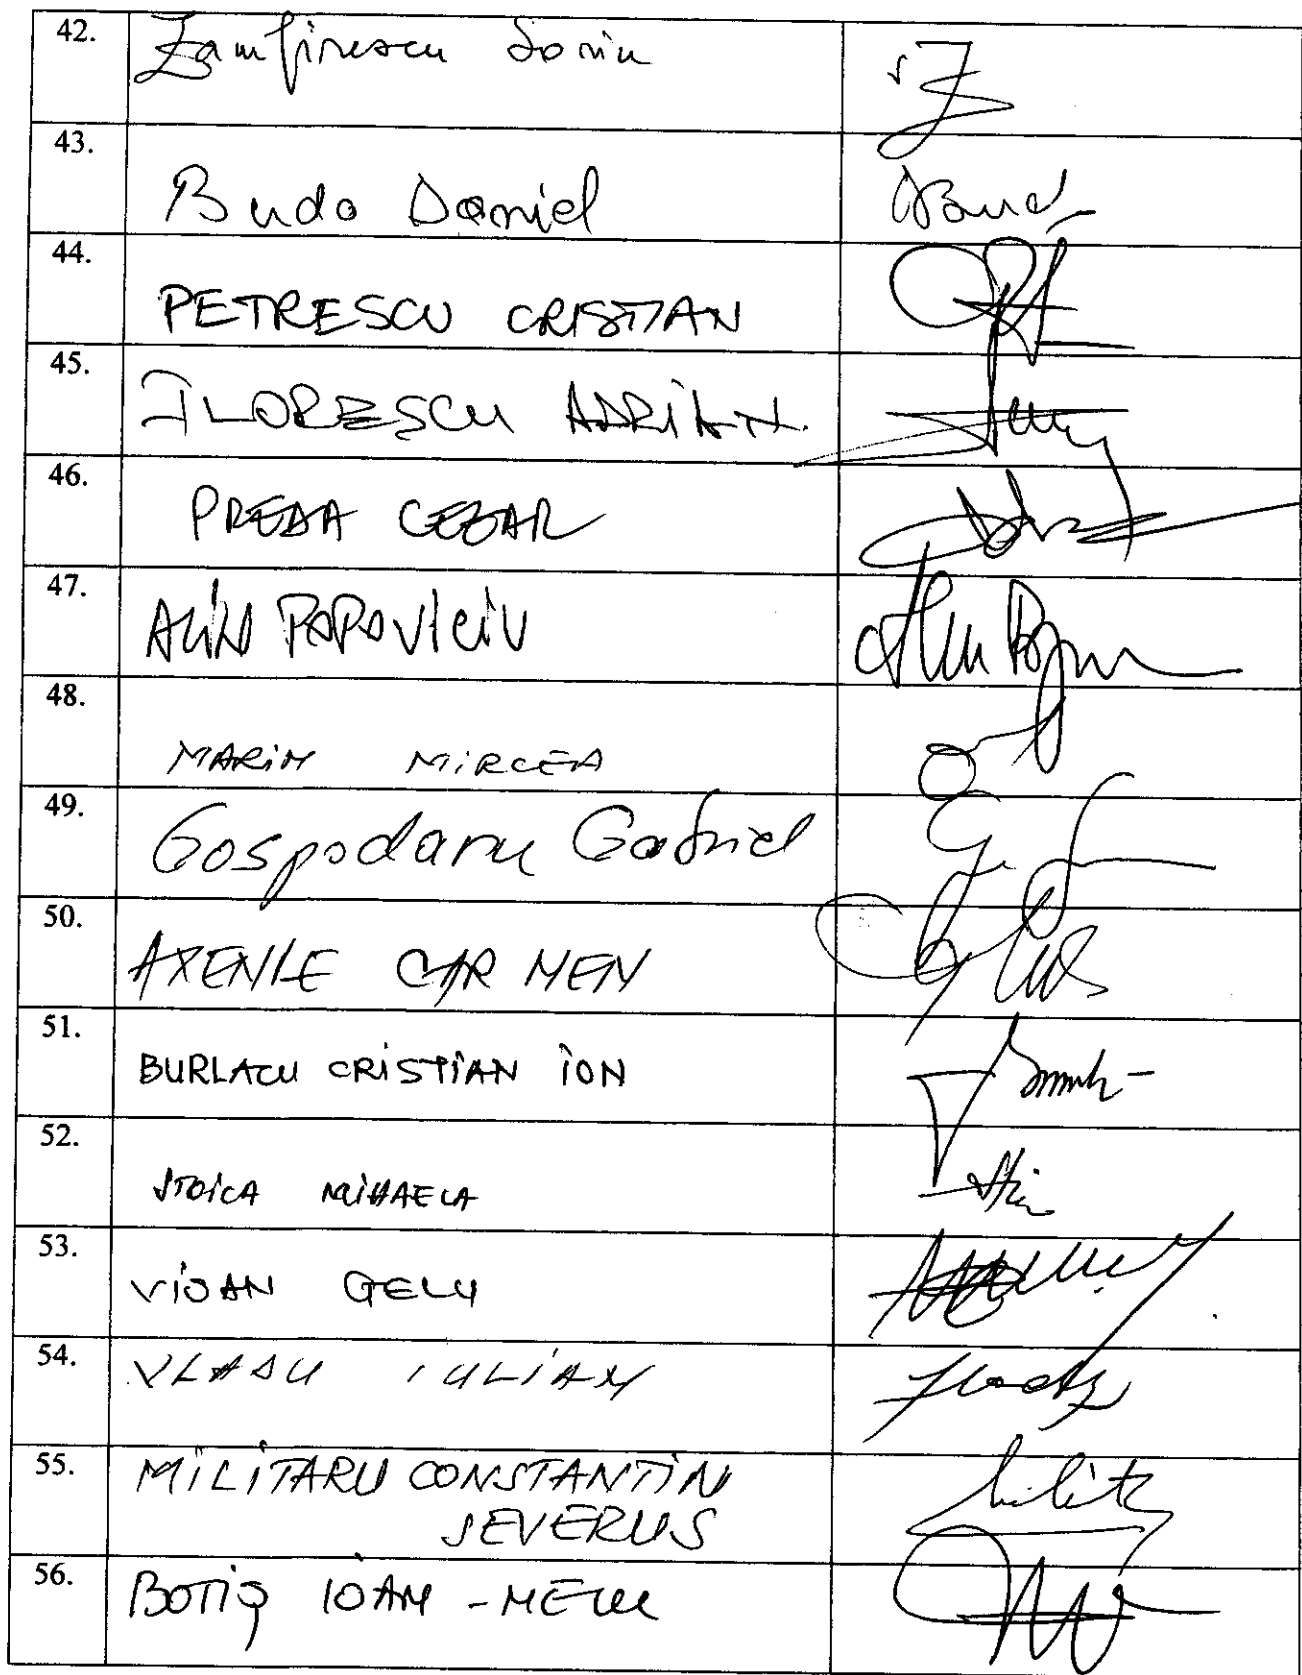 42. Zamfirescu Sorin
43. Buda Daniel
44. PETRESCU CRISTIAN
45. FLORESCU ADRIAN.
46. PREDA CEZAR
47. ALIN POPOVICIU
48. MARIN MIRCEA
49. Gospodaru Gabriel
50. AXENIE CARMEN
51. BURLACU CRISTIAN ION
52. STOICA MIHAELA
53. VIOAN GELU
54. VLADU IULIAN
55. MILITARU CONSTANTIN
SEVERUS
56. BOTIȘ IOAN - NELU